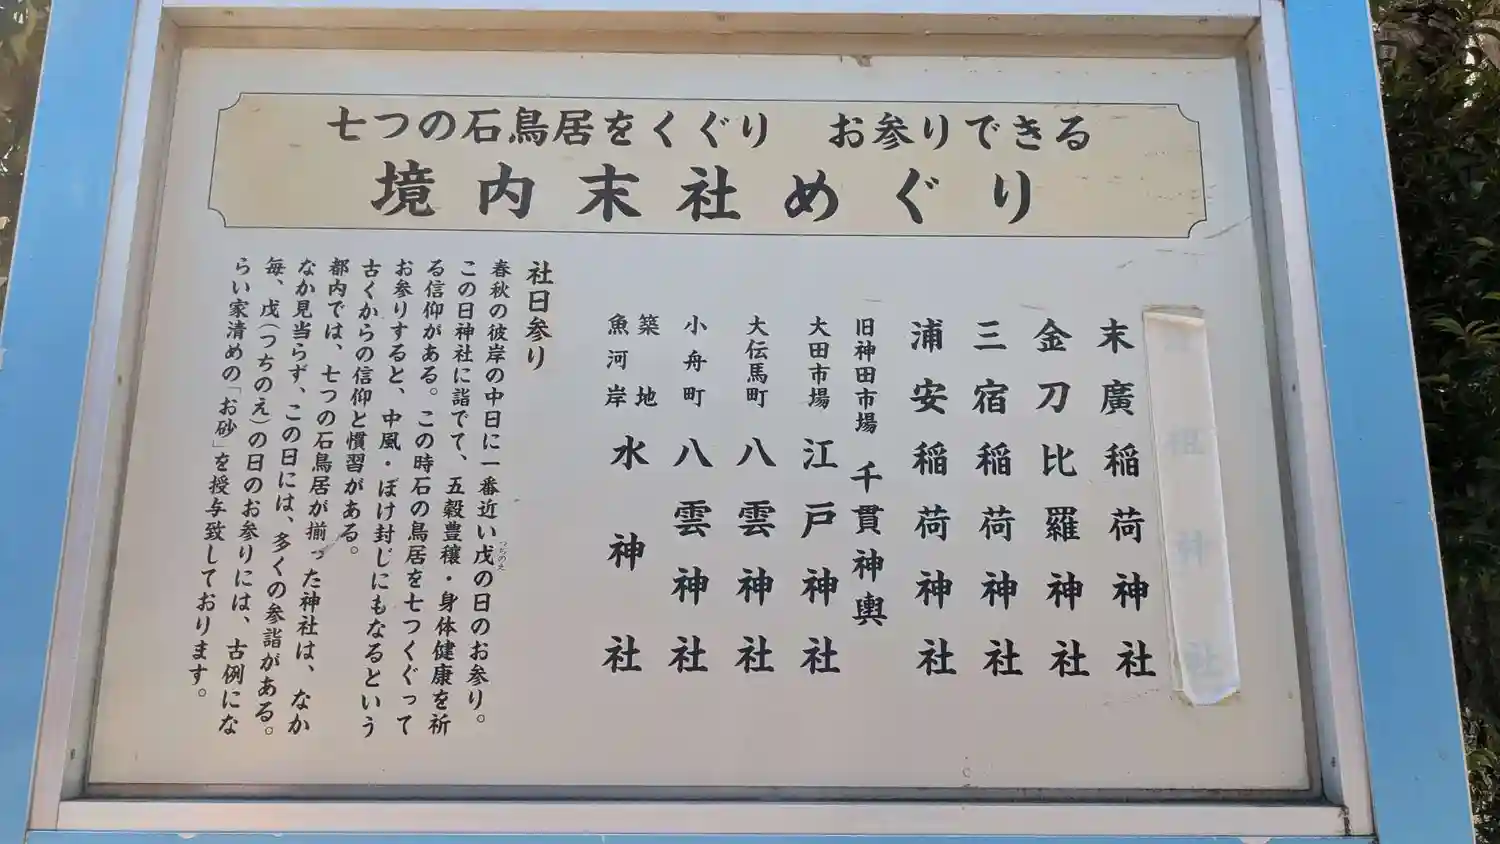 七つの石鳥居をくぐり　お参りできる
境内末社めぐり
末廣稲荷神社
金刀比羅神社
三宿稲荷神社
浦安稲荷神社
旧神田市場　千貫神輿
大田市場　江戸神社
大伝馬町　八雲神社
小舟町　八雲神社
築地
魚河岸　水神社
社日参り
春秋の彼岸の中日に一番近い戊の日のお参り。
つちのえ
この日神社に詣でて、五穀豊穣・身体健康を祈
る信仰がある。この時石の鳥居を七つくぐって
お参りすると、中風・ぼけ封じにもなるという
古くからの信仰と慣習がある。
都内では、七つの石鳥居が揃った神社は、なか
なか見当らず、この日には、多くの参詣がある。
毎、戊（つちのえ）の日のお参りには、古例にな
らい家清めの「お砂」を授与致しております。